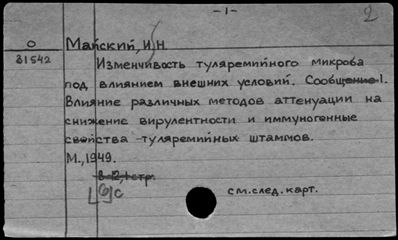 - 1 -
2
О
31542
Майский, И.Н.
Изменчивость туляремийного микроба
под влиянием внешних условий. Сообщение 1.
Влияние различных методов аттенуации на
снижение вирулентности и иммуногенные
свойства туляремийных штаммов.
М., 1949.
см. след. карт.